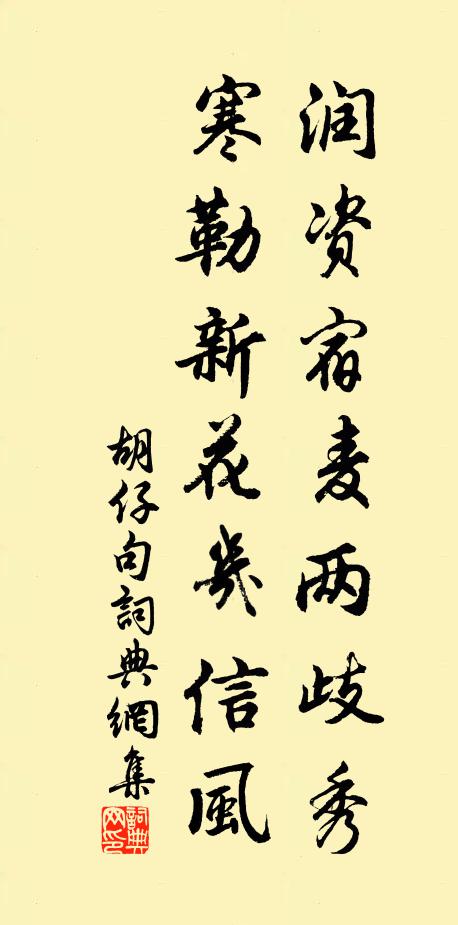 润资宿麦两歧秀
寒勒新花几信風
胡仔句詞典網集
詞典网印